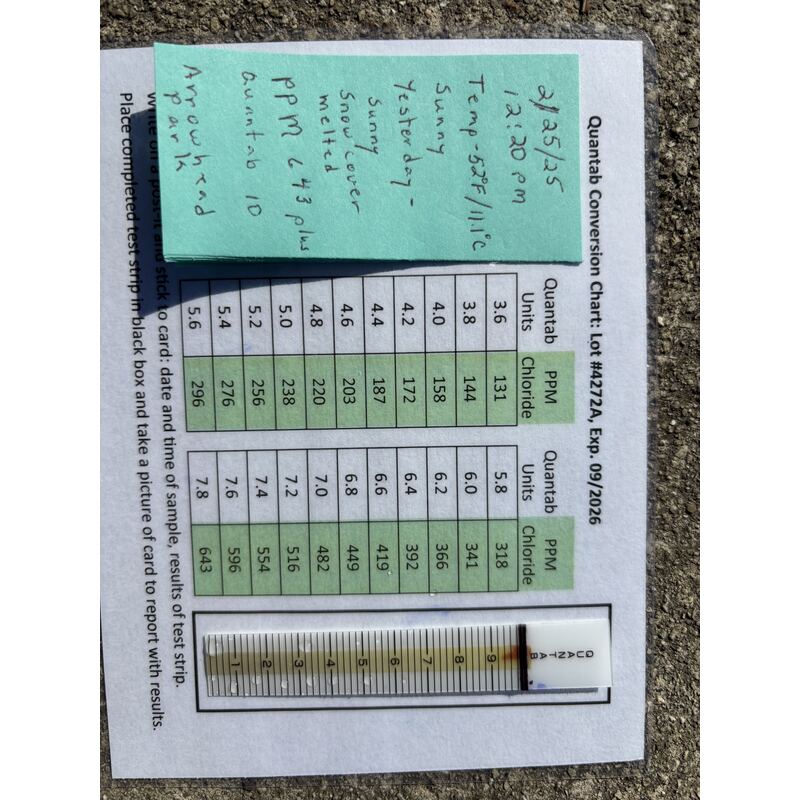 Quantab Conversion Chart: Lot #4272A, Exp. 09/2026
2/25/25
12:20 pm
Temp-52°F/11.1°C
Sunny
Yesterday-
Sunny
Snow cover
melted
PPM 643 plus
Quantab 10
Arrowhead
park
Quantab Units PPM Chloride
3.6 131
3.8 144
4.0 158
4.2 172
4.4 187
4.6 203
4.8 220
5.0 238
5.2 256
5.4 276
5.6 296
Quantab Units PPM Chloride
5.8 318
6.0 341
6.2 366
6.4 392
6.6 419
6.8 449
7.0 482
7.2 516
7.4 554
7.6 596
7.8 643
QUANTAB
9
8
7
6
5
4
3
2
1
Write on a post-it and stick to card: date and time of sample, results of test strip.
Place completed test strip in black box and take a picture of card to report with results.